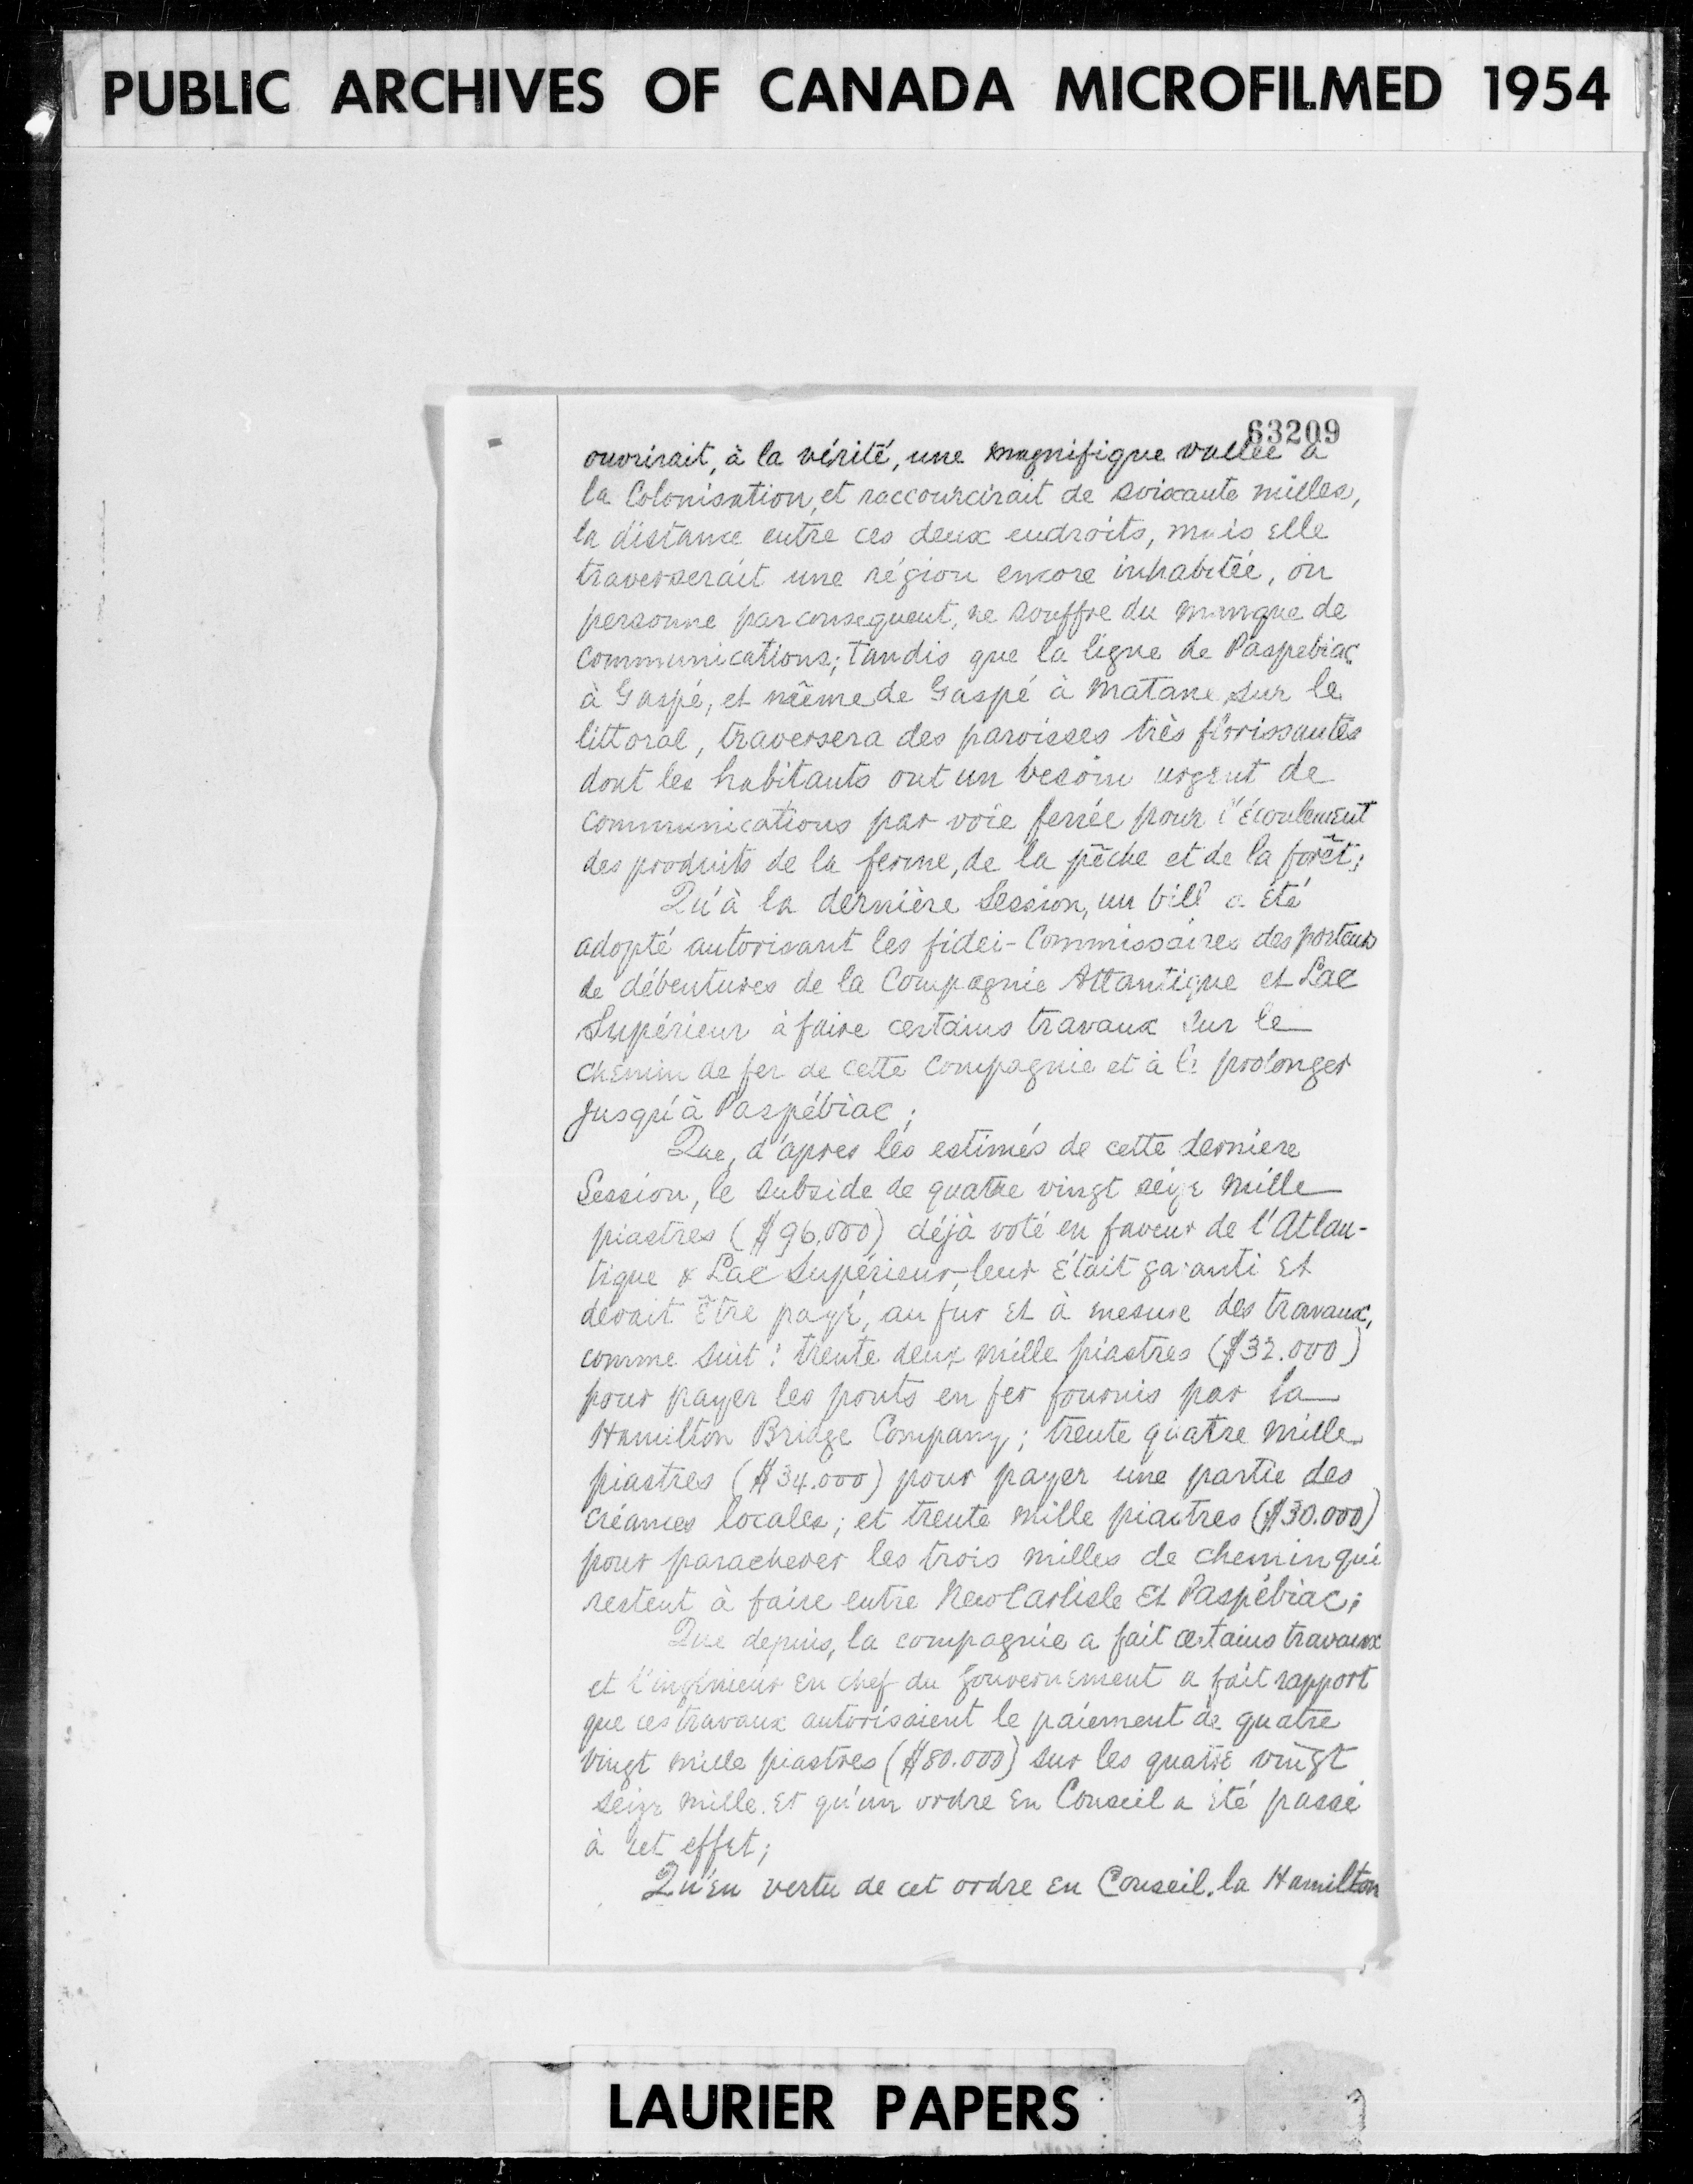 PUBLIC ARCHIVES OF CANADA MICROFILMED 1954
63209
ouvrirait, à la vérité, une magnifique vallée à
la Colonisation, et raccourcirait de soixante milles,
la distance entre ces deux endroits, mais elle
traverserait une région encore inhabitée, où
personne par consequent, ne souffre du manque de
communications; tandis que la ligne de Paspebiac
à Gaspé, et même de Gaspé à Matane, sur le
littoral, traversera des paroisses très florissantes
dont les habitants ont un besoin urgent de
communications par voie ferrée pour l'écoulement
des produits de la ferme, de la pêche et de la forêt;
Qu'à la dernière Session, un bill a été
adopté autorisant les fidei-Commissaires des porteurs
de débentures de la Compagnie Atlantique et Lac
Supérieur à faire certains travaux sur le
chemin de fer de cette Compagnie et à le prolonger
jusqu'à Paspébiac;
Que, d'apres les estimés de cette derniere
Session, le subside de quatre vingt seize mille
piastres ($96.000) déjà voté en faveur de l'Atlan-
tique & Lac Supérieur, leur était garanti et
devait être payé, au fur et à mesure des travaux,
comme suit: trente deux mille piastres ($32.000)
pour payer les ponts en fer fournis par la
Hamilton Bridge Company; trente quatre mille
piastres ($34.000) pour payer une partie des
créances locales; et trente mille piastres ($30.000)
pour parachever les trois milles de chemin qui
restent à faire entre New Carlisle et Paspébiac;
Que depuis, la compagnie a fait certains travaux
et l'ingénieur en chef du Gouvernement a fait rapport
que ces travaux autorisaient le paiement de quatre
vingt mille piastres ($80.000) sur les quatre vingt
seize mille. et qu'un ordre en Conseil a été passé
à cet effet;
Qu'en vertu de cet ordre en Conseil, la Hamilton
LAURIER PAPERS